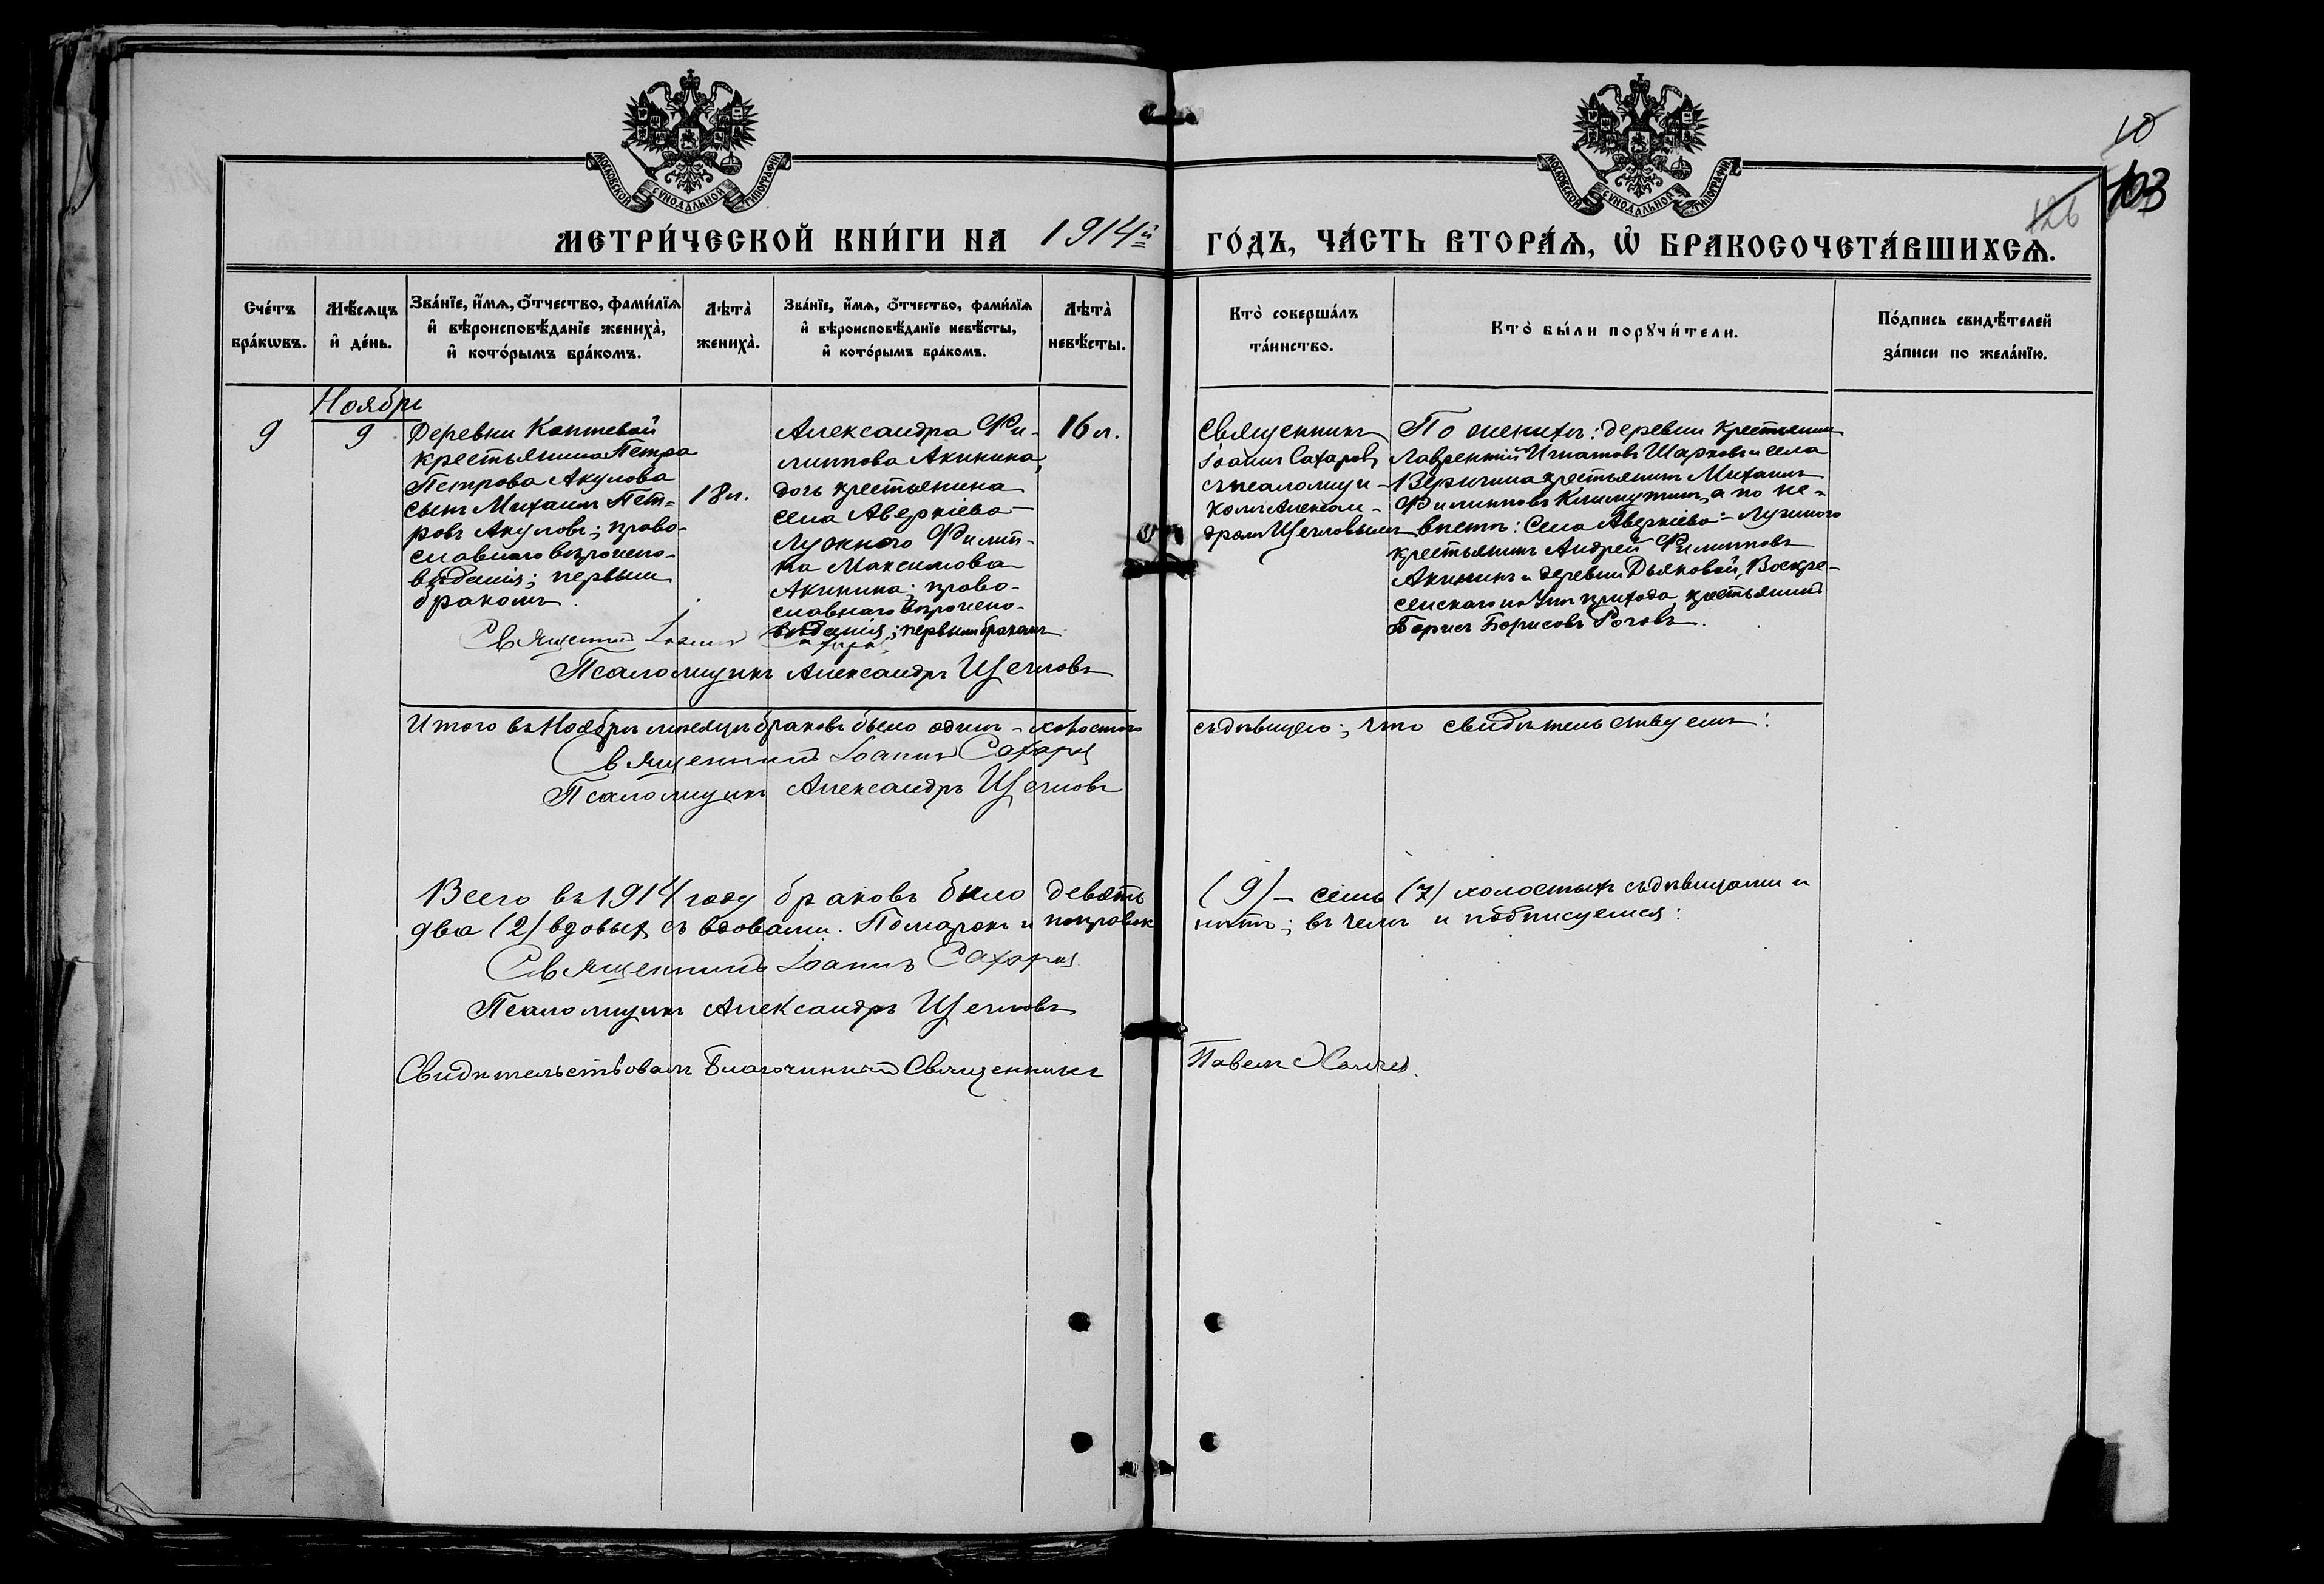 МОСКОВСКОЙ СУНОДАЛЬНОЙ ТИПОГРАФІИ
МОСКОВСКОЙ СУНОДАЛЬНОЙ ТИПОГРАФІИ
10
103
126
МЕТРИ́ЧЕСКОЙ КНИ́ГИ НА 1914й ГО́ДЪ, ЧА́СТЬ ВТОРА́Ѧ, Ѽ БРАКОСОЧЕТА́ВШИХСѦ.
Сче́тъ
бра́кѡвъ.
Мѣ́сѧцъ
и҆ де́нь.
Зва́нїе, и҆́мѧ, ѻ҆́тчество, фами́лїѧ
и҆ вѣроисповѣ́данїе жениха̀,
и҆ кото́рымъ бра́комъ.
Лѣта̀
жениха̀.
Зва́нїе, и҆́мѧ, ѻ҆́тчество, фами́лїѧ
и҆ вѣроисповѣ́данїе невѣ́сты,
и҆ кото́рымъ бра́комъ.
Лѣта̀
невѣ́сты.
Кто̀ соверша́лъ
та́инство.
Кто̀ бы́ли порꙋчи́тели.
По́дпись свидѣ́телей
за́писи по жела́нїю.
Ноябрь
9
9
Деревни Коптевой
крестьянина Петра
Петрова Акулова
сынъ Михаилъ Пет=
ровъ Акуловъ; право-
славнаго вѣроиспо-
вѣданія; первым
бракомъ.
18 л.
Александра Фи-
липпова Акинина,
дочь крестьянина
села Аверкіева-
Лужного Филип-
па Максимова
Акинина; право-
славнаго вѣроиспо-
вѣданія; первым бракомъ
16 л.
Священникъ
Іоаннъ Сахаровъ
съ псаломщи-
комъ Алексан-
дромъ Щегловымъ
По женихѣ: деревни крестьянин
Лаврентій Игнатовъ Шарковъ и села
крестьянинъ Михаилъ
Филипповъ а по не-
вѣстѣ: Села Аверкіева-Лужного
крестьянинъ Андрей Филипповъ
Акининъ и деревни Дьяковой, Воскре-
сенскаго на прихода крестьянинъ
Борисъ Борисовъ Роговъ.
Священникъ Іоаннъ Сахаровъ
Псаломщикъ Александръ Щегловъ
Итого въ Ноябрѣ мѣсяцѣ браковъ было одинъ - холостого съ дѣвицею; что свидѣтельствуемъ:
Священникъ Іоаннъ Сахаровъ
Псаломщикъ Александръ Щегловъ
Всего въ 1914 году браковъ было девять (9) - семь (7) холостыхъ съ дѣвицами и
два (2) вдовых съ вдовами. Помарокъ и поправокъ нѣтъ; въ чемъ и подписуемся:
Священникъ Іоаннъ Сахаровъ
Псаломщикъ Александръ Щегловъ
Свидѣтельствовалъ Благочинный Священникъ Павелъ